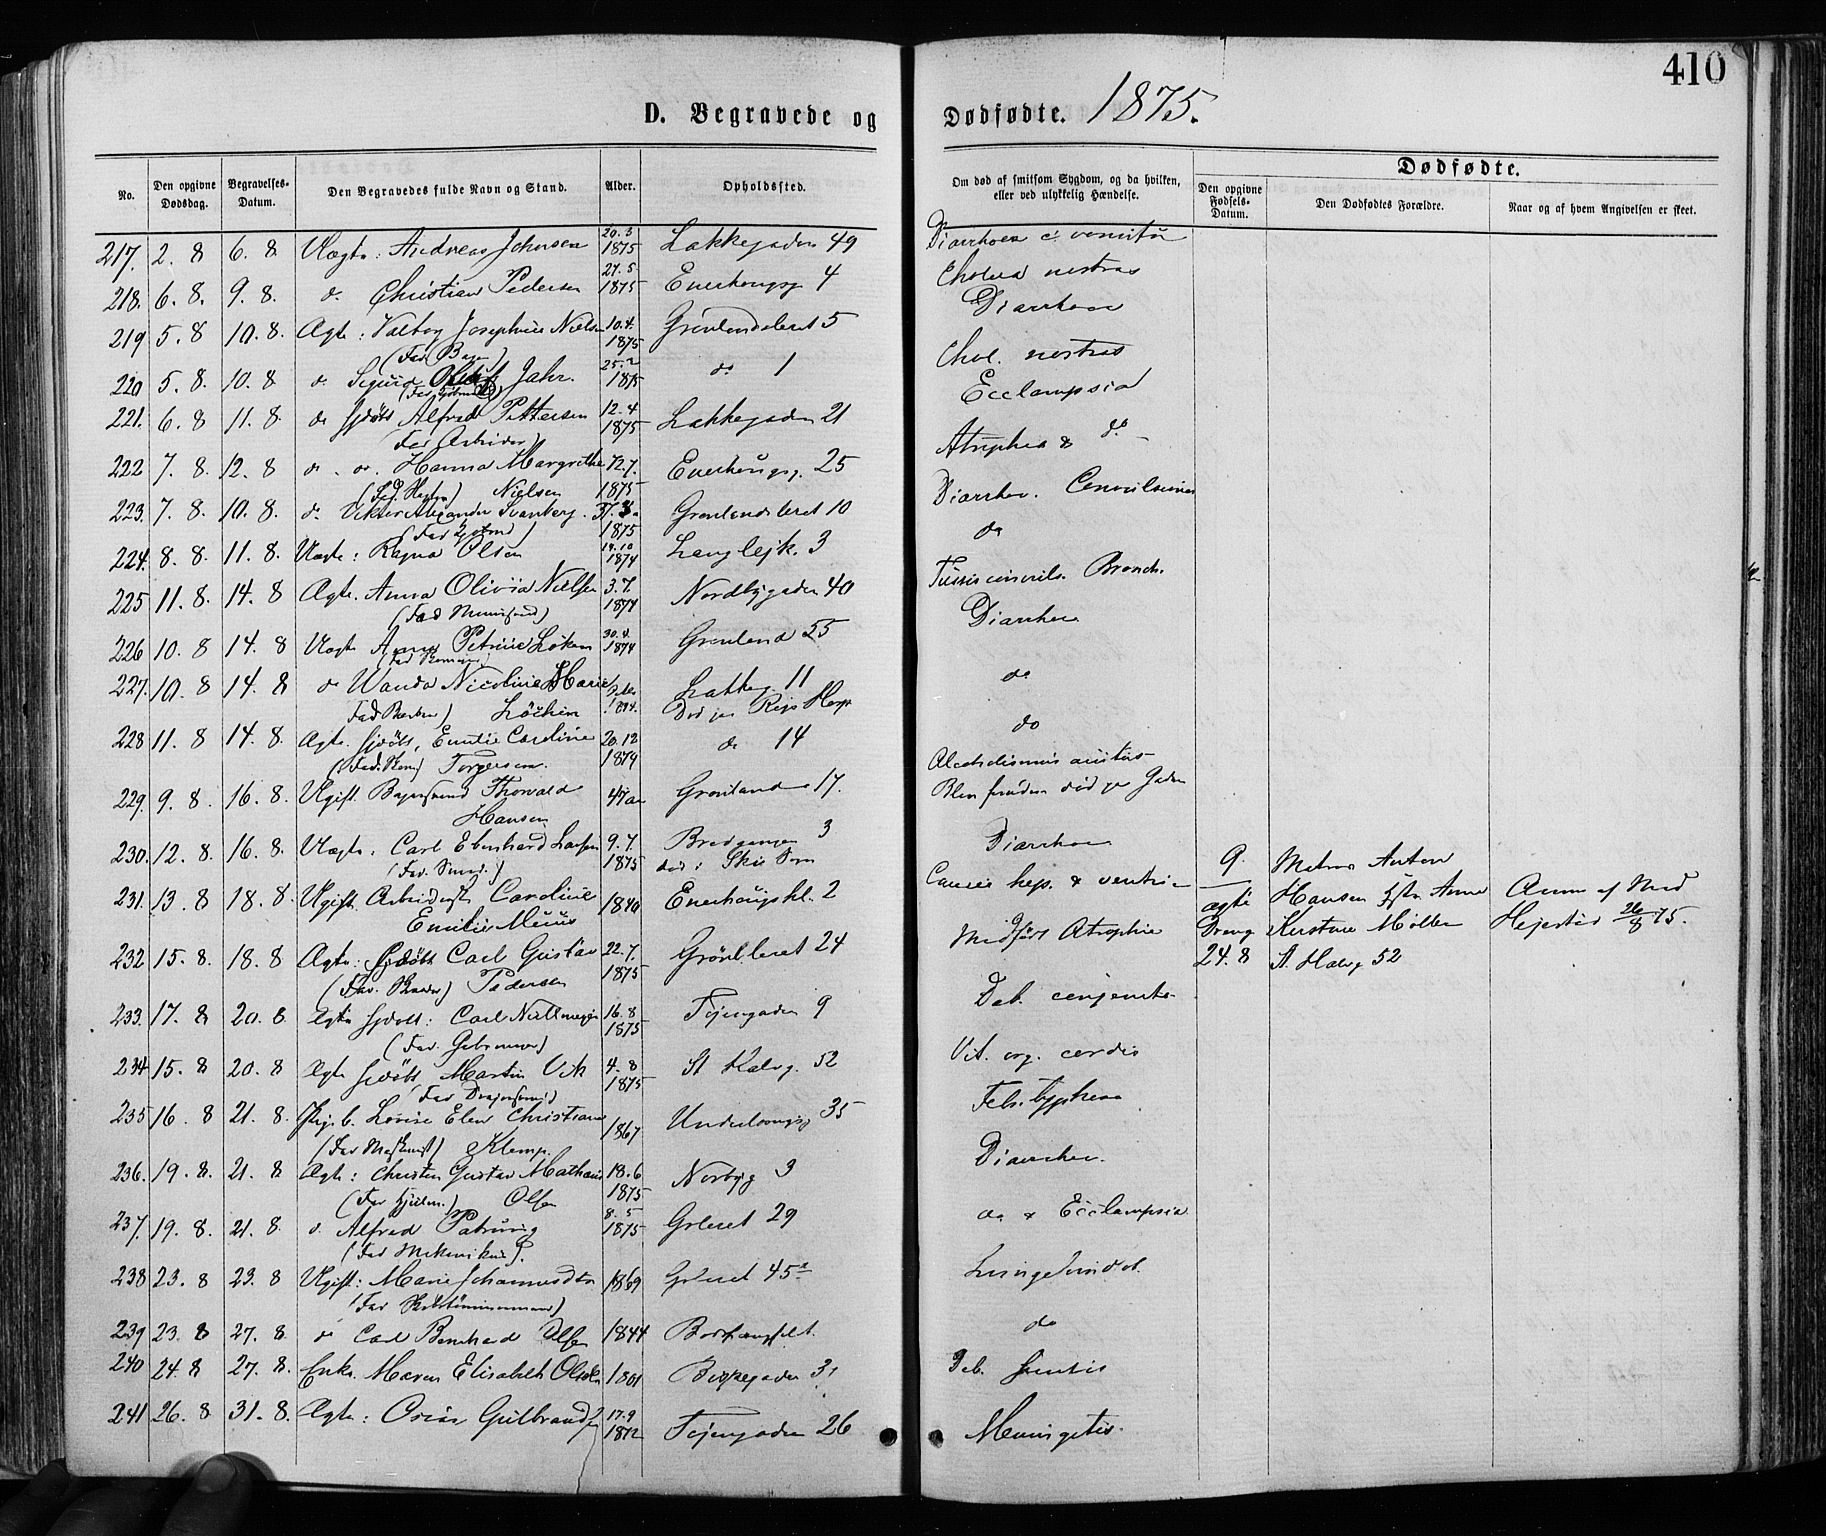 410
D. Begravede og Dødfødte. 1875.
No. | Den opgivne Dødsdag. | Begravelses-Datum. | Den Begravedes fulde Navn og Stand. | Alder. | Opholdssted. | Om død af smitsom Sygdom, og da hvilken, eller ved ulykkelig Hændelse. | Dødfødte. | Den opgivne Fødsels-Datum. | Den Dødfødtes Forældre. | Naar og af hvem Angivelsen er skeet.
217. 2. 8 6. 8. Uægte: Andreas Johnsen 20.3 1875 Lakkegaden 49 Diarrhoea c. vomitu
218. 6. 8. 9. 8. do Christian Pedersen 27.5 1875 Enerhougsg 4 Cholera nostras
219 5. 8 10. 8. Ægte: Valborg Josephine Nielsen 10.4. 1875 Grønlandsleret 5 Diarrhoea
(Fad. Bager)
220 5. 8. 10. 8 do Sigurd Oluf Jahr. 25.2 1875 do 1 Chol. nostras
221. 6. 8 11. 8. do Alfred Pettersen 12.4 1875 Lakkegaden 21 Ecclampsia
(Fad Arbeider)
222 7. 8. 12. 8 do. do. Hanna Margrethe 12.7. 1875 Enerhougsg. 25 Atrophia & do
Nielsen
223. 7. 8. 10. 8. do Viktor Alexander Svanberg 1875 Grønlandsleret 10 Diarrhoe. Convulsiones
224. 8. 8. 11. 8. Uægte: Ragna Olsen 14.10 1874 Langlejk. 3 do
225 11. 8. 14. 8 Ægte. Anna Olivia Nielsen 3.7. 1874 Nordbygaden 40 Tussis convuls. Bronch.
(Fad Muursvend)
226 10. 8 14. 8 Uægte Anna Petrine Løken 30.4. 1874 Grønland 25 Diarrhoe
227. 10. 8 14. 8 do Wanda Nicoline Marie 1874. Lakkeg 11 do
Død paa Rigs Hosp
228 11. 8 14. 8. Ægte. Emilie Caroline 20.12 1874 do 14 do
Torgersen.
229. 9. 8. 16. 8. Ugift. Thorvald 47 aar Grønland 17. Alcoholismus acutus
Hansen Blev funden død paa Gaden
230. 12. 8. 16. 8. Uægte. Carl Eberhard Larsen 9.7. 1875 Bredgangen 3 Diarrhoe
(Fad. Smed.) død i
231. 13. 8 18. 8. Ugift Arbeiderske Caroline 1840 Enerhougskl. 2 Cancer hep. & ventric
Emilie Muus
232 15. 8. 18. 8 Ægte: Carl Gustav 22.7. 1875 Grønl.leret 24 Medfødt Atrophie
Pedersen
9. ægte Dreng 24. 8 Matros Anton Hansen Hstr Anna Kirstine Møller St. Halvg 52 Anm af Mad Hejersted 26/8 75.
233. 17. 8 20. 8 Ægte: Carl 16.8 1875 Tøjengaden 9 Deb. congenita
234 15. 8 20. 8 Ægte Martin Vik 4.8 1875 St Halvg. 52 Vit. org. cordis
235 16. 8 21. 8. Pige b. Lovise Elen Christiane 1867 35 Febr. typhoia
(Fad Maskinist) Klemp.
236. 19. 8. 21. 8 Ægte: Christen Gustav Mathias 18.6 1875 Norbyg 3 Diarrhoe.
Olsen
237. 19. 8. 21. 8. do Alfred 8.5 1875 Grleret 29 do & Ecclampsia
(Fad Mekanikus)
238 23. 8 23. 8 Ugift: Marie Johannesdtr 1869 Grleret 45 a Lungebetænd.
(Fad Skibstømmermand)
239 23. 8 27. 8. do Carl Bernhard Olsen 1844 Bodsfængslet. do
240 24. 8 27. 8. Enke. Maren Elisabeth Olsen 1801 Bispegaden 31 Deb. senilis
241 26. 8 31. 8. Ægte: Oscar Gulbrandsen 17.9 1872 Tøjengaden 26 Meningitis.